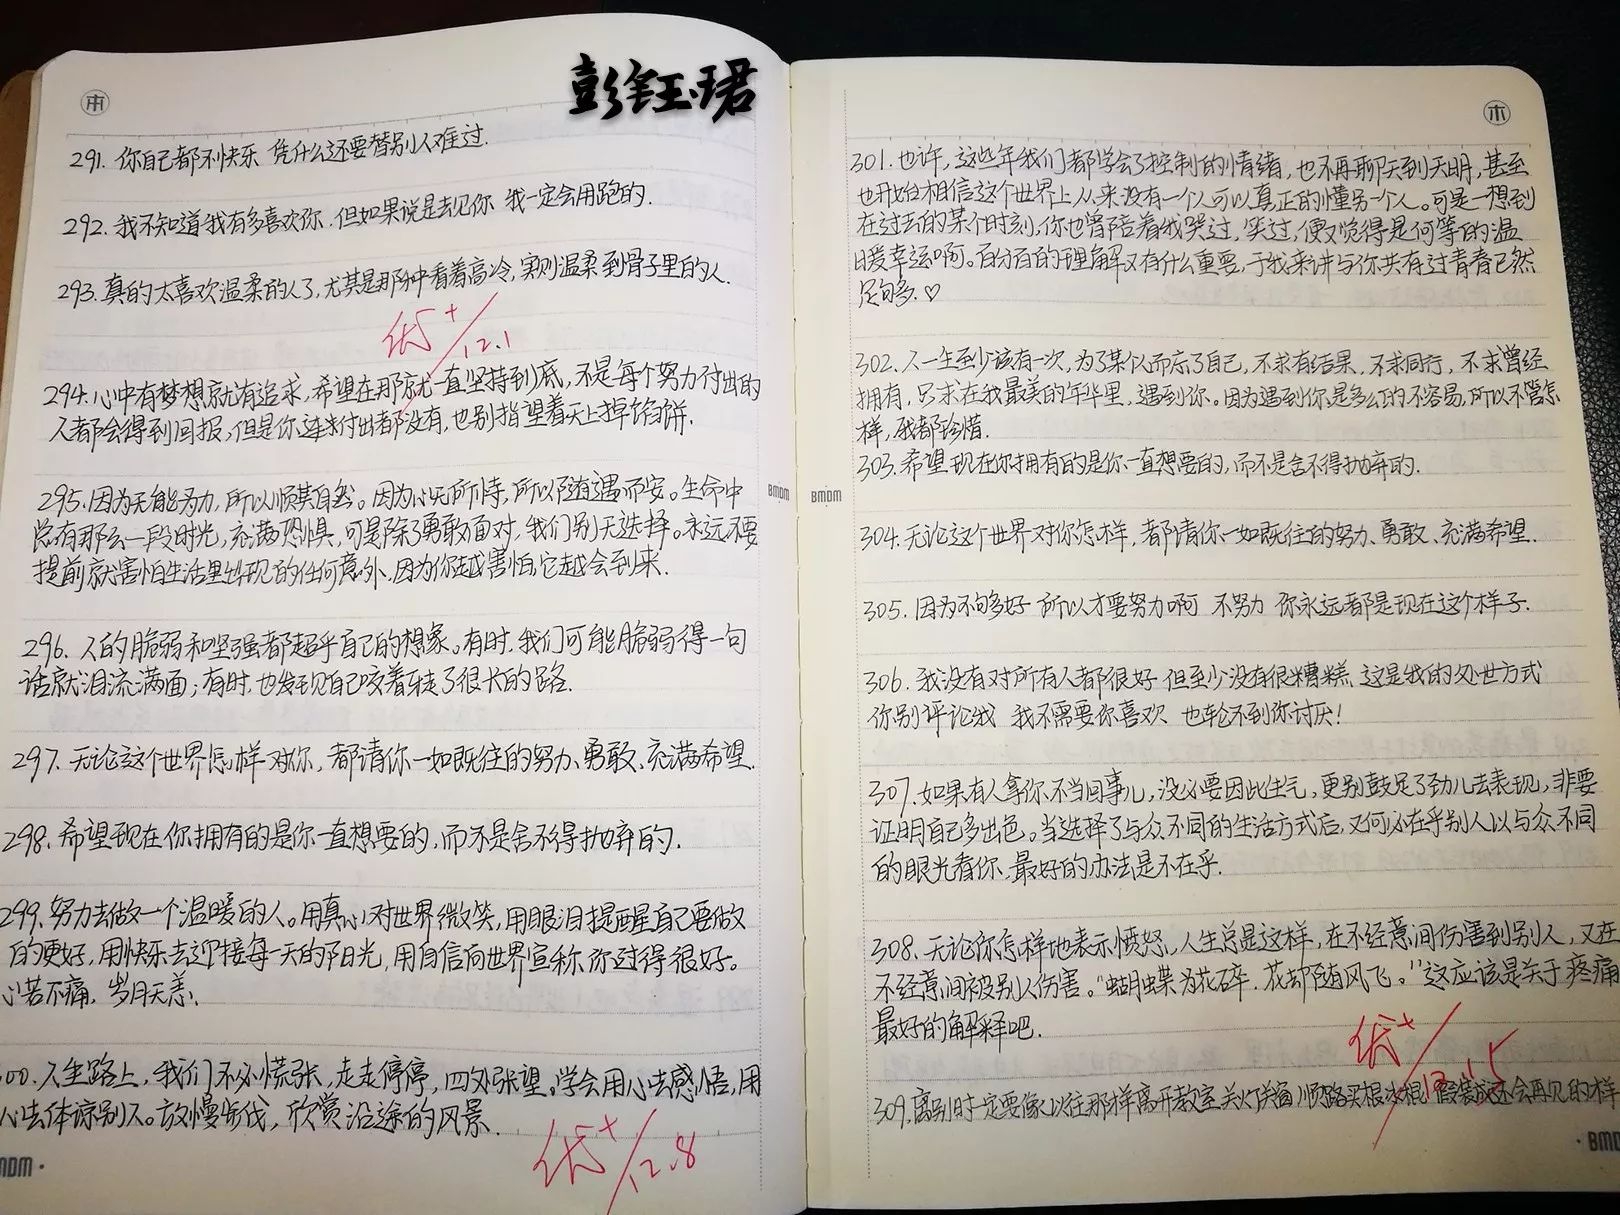 彭钰珺
291. 你自己都不快乐 凭什么还要替别人难过.
292. 我不知道我有多喜欢你. 但如果说是去见你 我一定会用跑的.
293. 真的太喜欢温柔的人了, 尤其是那种看着高冷, 实则温柔到骨子里的人.
优+
12.1
294. 心中有梦想就有追求, 希望在那就一直坚持到底, 不是每个努力付出的
人都会得到回报, 但是你连付出都没有, 也别指望着天上掉馅饼.
295. 因为无能为力, 所以顺其自然。因为心无所恃, 所以随遇而安。生命中
总有那么一段时光, 充满恐惧, 可是除了勇敢面对, 我们别无选择。永远不要
提前就害怕生活里出现的任何意外, 因为你越害怕, 它越会到来.
BMDM
296. 人的脆弱和坚强都超乎自己的想象。有时, 我们可能脆弱得一句
话就泪流满面; 有时, 也发现自己咬着牙走了很长的路.
297. 无论这个世界怎样对你, 都请你一如既往的努力、勇敢、充满希望.
298. 希望现在你拥有的是你一直想要的, 而不是舍不得抛弃的.
299. 努力去做一个温暖的人。用真心对世界微笑, 用眼泪提醒自己要做
的更好, 用快乐去迎接每一天的阳光, 用自信向世界宣称, 你过得很好。
心若不痛, 岁月无恙.
00. 人生路上, 我们不必慌张, 走走停停, 四处张望。学会用心去感悟, 用
心去体谅别人。放慢步伐, 欣赏沿途的风景.
优+
12.8
MDM
301. 也许, 这些年我们都学会了控制的情绪, 也不再聊天到天明, 甚至
也开始相信这个世界上从来没有一个人可以真正的懂另一个人。可是一想到
在过去的某个时刻, 你也曾陪着我哭过, 笑过, 便又觉得是何等的温
暖幸运啊。百分百的理解又有什么重要, 于我来讲与你共有过青春已然
足够. ♡
302. 人一生至少该有一次, 为了某个人而忘了自己, 不求有结果, 不求同行, 不求曾经
拥有, 只求在我最美的年华里, 遇到你。因为遇到你是多么的不容易, 所以不管怎
样, 我都珍惜.
303. 希望现在你拥有的是你一直想要的, 而不是舍不得抛弃的.
BMDM
304. 无论这个世界对你怎样, 都请你一如既往的努力、勇敢、充满希望.
305. 因为不够好 所以才要努力啊 不努力 你永远都是现在这个样子.
306. 我没有对所有人都很好 但至少没有很糟糕, 这是我的处世方式
你别评论我 我不需要你喜欢 也轮不到你讨厌!
307. 如果有人拿你不当回事儿, 没必要因此生气, 更别鼓足了劲儿去表现, 非要
证明自己多出色。当选择了与众不同的生活方式后, 又何必在乎别人以与众不同
的眼光看你, 最好的办法是不在乎.
308. 无论你怎样地表示愤怒, 人生总是这样, 在不经意间伤害到别人, 又在
不经意间被别人伤害。“蝴蝶为花碎, 花却随风飞。”这应该是关于疼痛
最好的解释吧.
优+
309. 离别时一定要像以往那样离开教室关灯关窗 顺路买根冰棍 假装成还会再见的样
BMDM